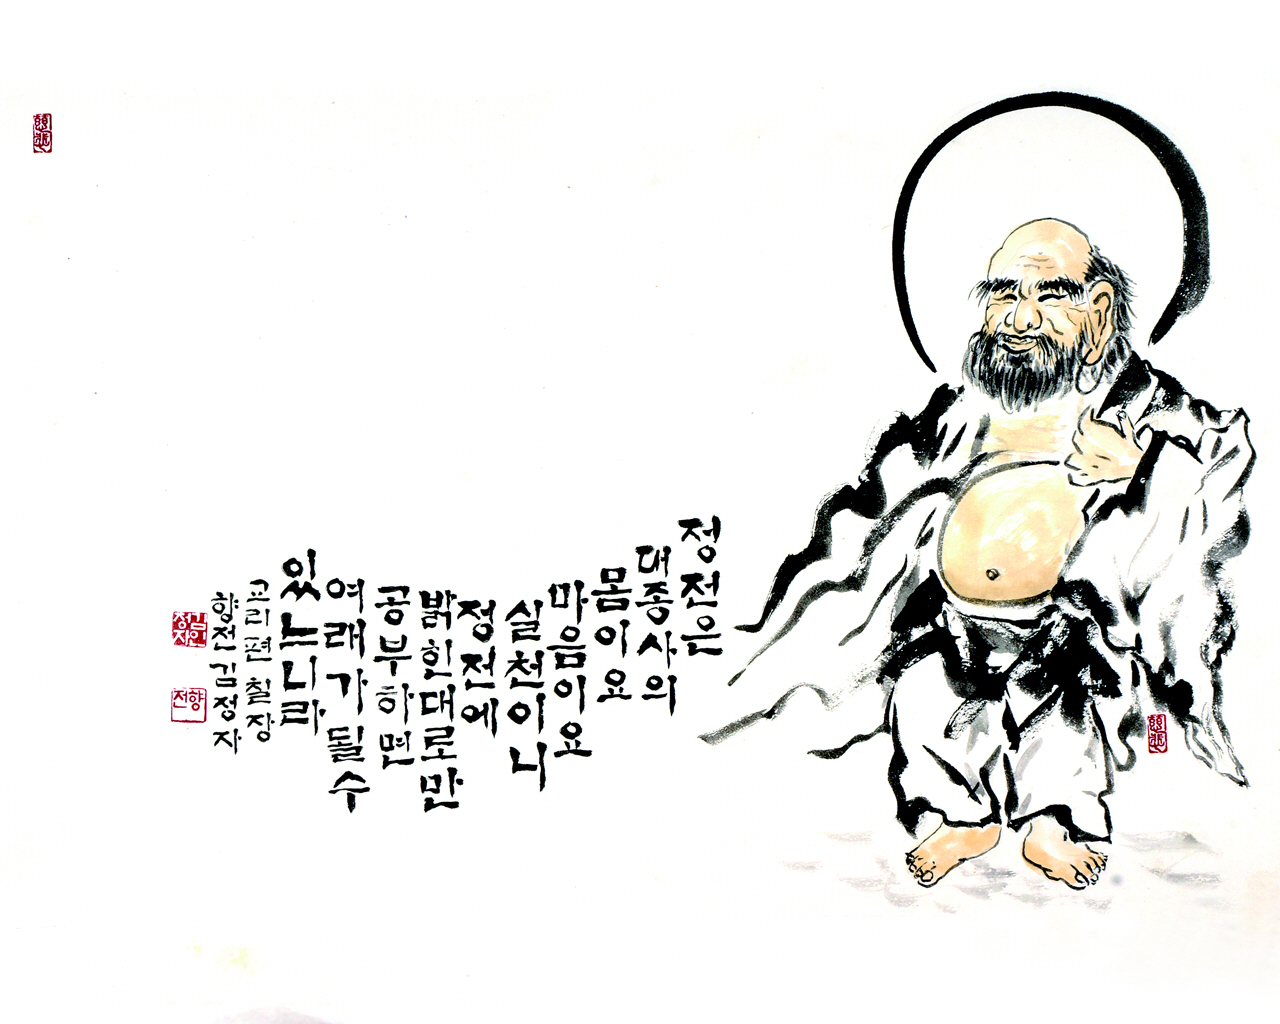 정전은
대종사의
몸이요
마음이요
실천이니
정전에
밝힌대로만
공부하면
여래가될수
있느니라
교리편칠장
향전김정자